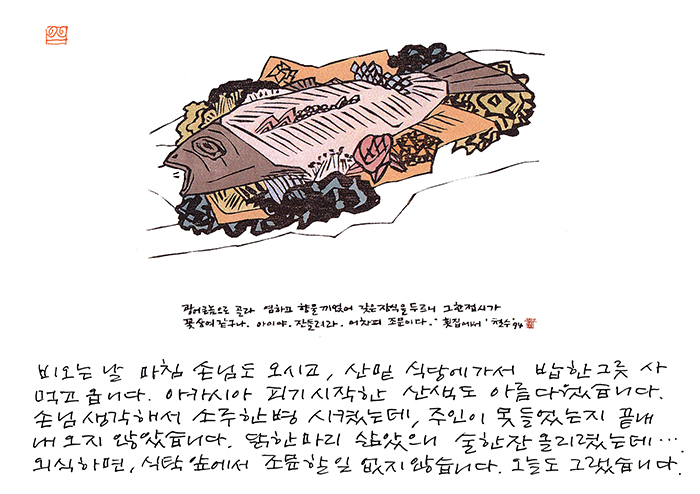 광어큰놈으로 골라 염하고 향을 끼얹어 갖은장식을 두르니 그한접시가
꽃상여 같구나. 아이야. 잔 돌리라. 어차피 조문이다." 횟집에서 '철수' 94
비오는 날 마침 손님도 오시고, 산밑 식당에 가서 밥 한그릇 사
먹고 옵니다. 아카시아 피기 시작한 산색도 아름다웠습니다.
손님 생각해서 소주 한병 시켰는데, 주인이 못들었는지 끝내
내오지 않았습니다. 닭 한마리 삶았으니 술 한잔 올리렸는데…
외식하면, 식탁앞에서 조문할일 없지 않습니다. 오늘도 그랬습니다.